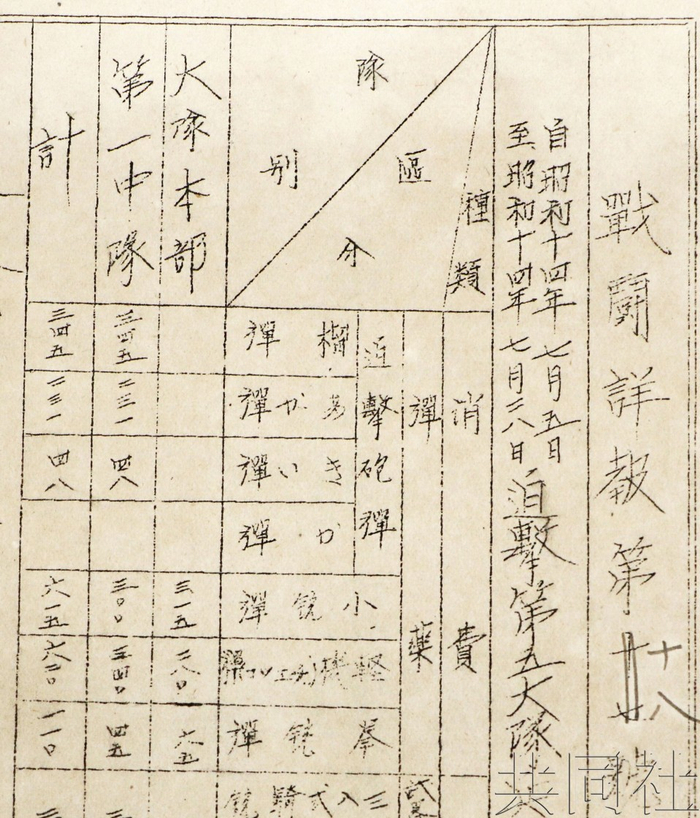 戰鬪詳報第十八號
自昭和十四年七月五日
至昭和十四年七月二八日
迫擊第五大隊
種類
區分
隊別
消費
彈藥
迫擊砲彈
榴彈
あか彈
きい彈
か彈
小銃彈
拳銃彈
三八式騎銃
大隊本部
三一五
二八〇
六五
第一中隊
三四五
二三一
四八
三〇〇
三四〇
四五
計
三四五
二三一
四八
六一五
六二〇
一一〇
共同社